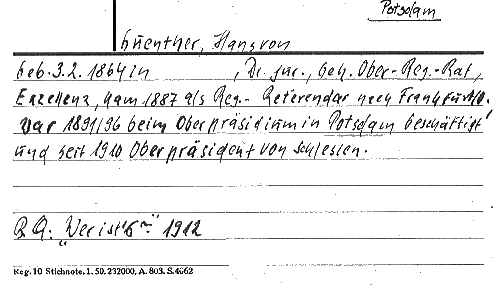 Potsdam
Guenther, Hans von
geb. 3.2. 1864 in , Dr. jur., Geh. Ober-Reg.-Rat,
Exzellenz, kam 1887 als Reg.-Referendar nach Frankfurt/O.
War 1891/96 beim Oberpräsidium in Potsdam beschäftigt
und seit 1910 Oberpräsident von Schlesien.
RA: "Wer ist's" 1912
Reg. 10 Stichnote. 1. 50. 232000. A. 803. S. 4662